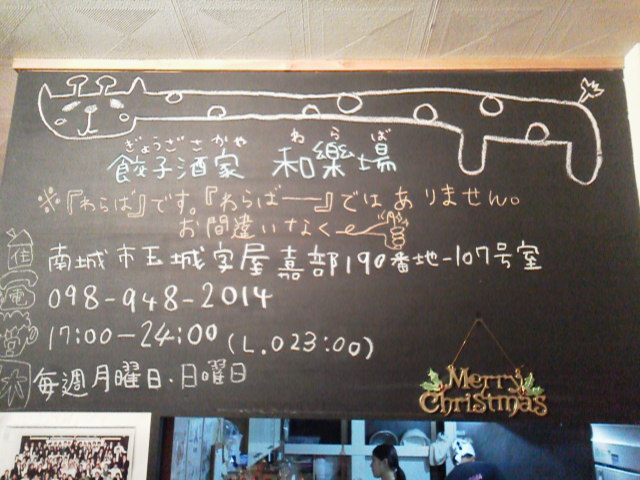 ぎょうざ さかや わらば
餃子酒家 和樂場
※『わらば』です。『わらばー』ではありません。
お間違いなく
住 南城市玉城字屋嘉部190番地-107号室
電 098-948-2014
営 17:00-24:00 (L.O23:00)
休 毎週月曜日、日曜日
Merry
Christmas